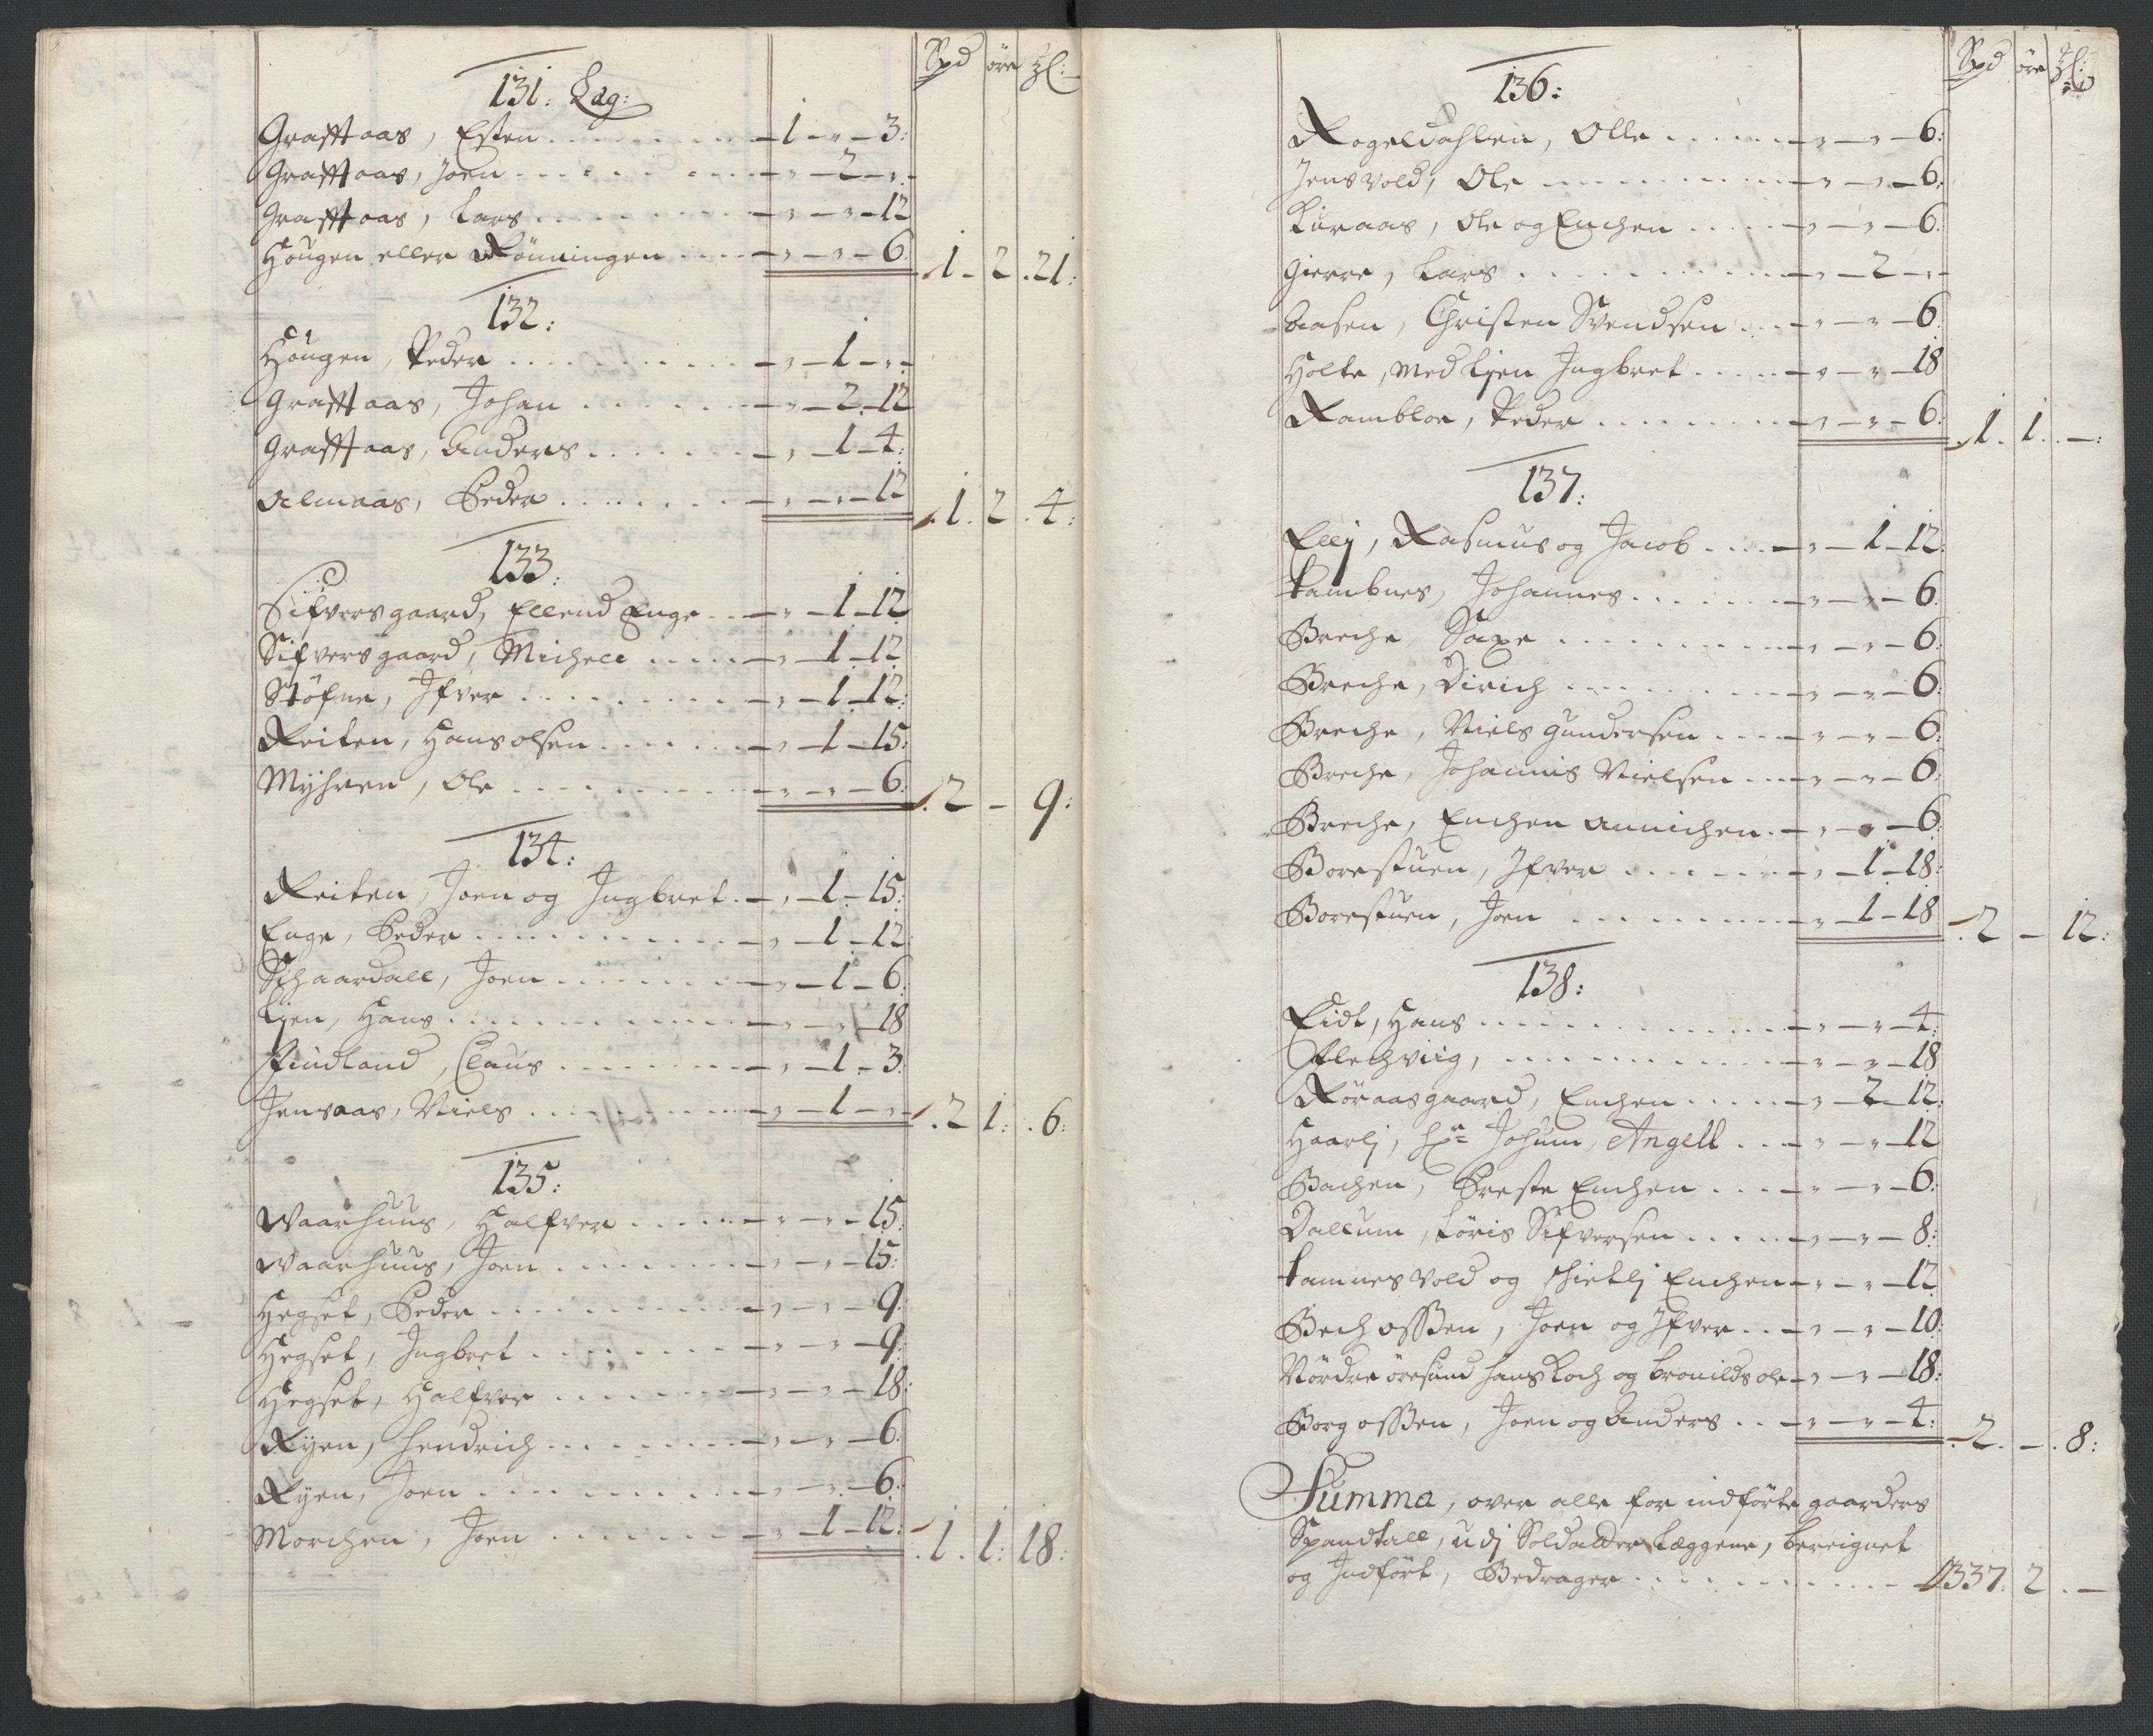 Spd öre
131: Læg:
Grafftaas, Esten . . . . . . . . – 1 – „ – 3:
Grafftaas, Joen . . . . . . . . – „ – 2 – „ –
Grafftaas, Lars . . . . . . . . – „ – „ – 12
Hougen eller Rönningen . . . . – „ – „ – 6. 1 – 2 . 21:
132:
Hougen, Peder . . . . . . . . – „ – 1 – „ –
Grafftaas, Johan . . . . . . . – „ – 2 – 12
Grafftaas, Anders . . . . . . . – „ – 1 – 4:
Aalmaas, Peder . . . . . . . . – „ – „ – 12 1 . 2 . 4:
133:
Sifversgaard, Ellend Enge . . – „ – 1 – 12
Sifversgaard, Michell . . . . . – „ – 1 – 12
Stöfne, Ifver . . . . . . . . . – „ – 1 – 12:
Reiten, Hans olsen . . . . . . . – „ – 1 – 15:
Myhren, Ole . . . . . . . . . . – „ – „ – 6: 2 – 9:
134:
Reiten, Joen og Ingbret . – „ – 1 – 15:
Enge, Peder . . . . . . . . . . – „ – 1 – 12
Schaardall, Joen . . . . . . . – „ – 1 – 6:
Lien, Hans . . . . . . . . . . – „ – „ – 18
Findland, Claus . . . . . . . . – „ – 1 – 3:
Jensaas, Niels . . . . . . . . . – „ – 1 – „ – 2 1: 6:
135:
Waarhuus, Halfver . . . . . . – „ – „ – 15:
Waarhuus, Joen . . . . . . . . – „ – „ – 15:
Hegset, Peder . . . . . . . . . – „ – „ – 9:
Hegset, Ingbret . . . . . . . . – „ – „ – 9:
Hegset, Halfver . . . . . . . . – „ – „ – 18:
Ryen, Hendrich . . . . . . . . – „ – „ – 6:
Ryen, Joen . . . . . . . . . . – „ – „ – 6:
Morchen, Joen . . . . . . . . . – „ – 1 – 12: 1 . 1: 18:
Spd öre
136:
Rogeldahlen, Olle . . . . . – „ – „ – 6:
Jensvold, Ole . . . . . . . . . – „ – „ – 6:
Kuraas, Ole og Enchen . . . . . – „ – „ – 6:
Gierre, Lars . . . . . . . . . . – „ – 2 – „ –
Aasen, Christen Svendsen . . . – „ – „ – 6
Holte, med Lien Ingbret . . . . . – „ – „ – 18
Rambloe, Peder . . . . . . . . . – „ – „ – 6: 1 . 1 . – :
137:
Ellj, Rasmus og Jacob . . . . – „ – 1 – 12:
Tambnes, Johannes . . . . . . . – „ – „ – 6:
Breche, Saxe . . . . . . . . . . – „ – „ – 6:
Breche, Dirich . . . . . . . . . – „ – „ – 6:
Breche, Niels Gundersen . . . . – „ – „ – 6:
Breche, Johannis Nielsen . . . . – „ – „ – 6:
Breche, Enchen Annichen . – „ – „ – 6:
Borestuen, Ifver . . . . . . . . – „ – 1 – 18:
Borestuen, Joen . . . . . . . . – „ – 1 – 18 2 – 12:
138:
Eidt, Hans . . . . . . . . . . . – „ – „ – 4:
Flechviig, . . . . . . . . . . . – „ – „ – 18
Röraasgaard, Enchen . . . . . – „ – 2 – 12:
Haarlj, Johum, Angell . . . – „ – „ – 12
Bachen, Preste Enchen . . . . – „ – „ – 6:
Dallum, Löris Sifversen . . . . – „ – „ – 8:
Tamnesvold og Schietlj Enchen – „ – „ – 12
Bech ossßen, Joen og Ifver . . – „ – „ – 10:
Nördre öresund Hans Koch og bronilds ole – „ – „ – 18:
Borg ossßen, Joen og Anders . . – „ – „ – 4: 2 . – . 8:
Summa, over alle for indförte gaarders
Spandtall, udj Soldatter Læggene, bereignet
og Indfört, Bedrager . . . . . . . . 337: 2 . –